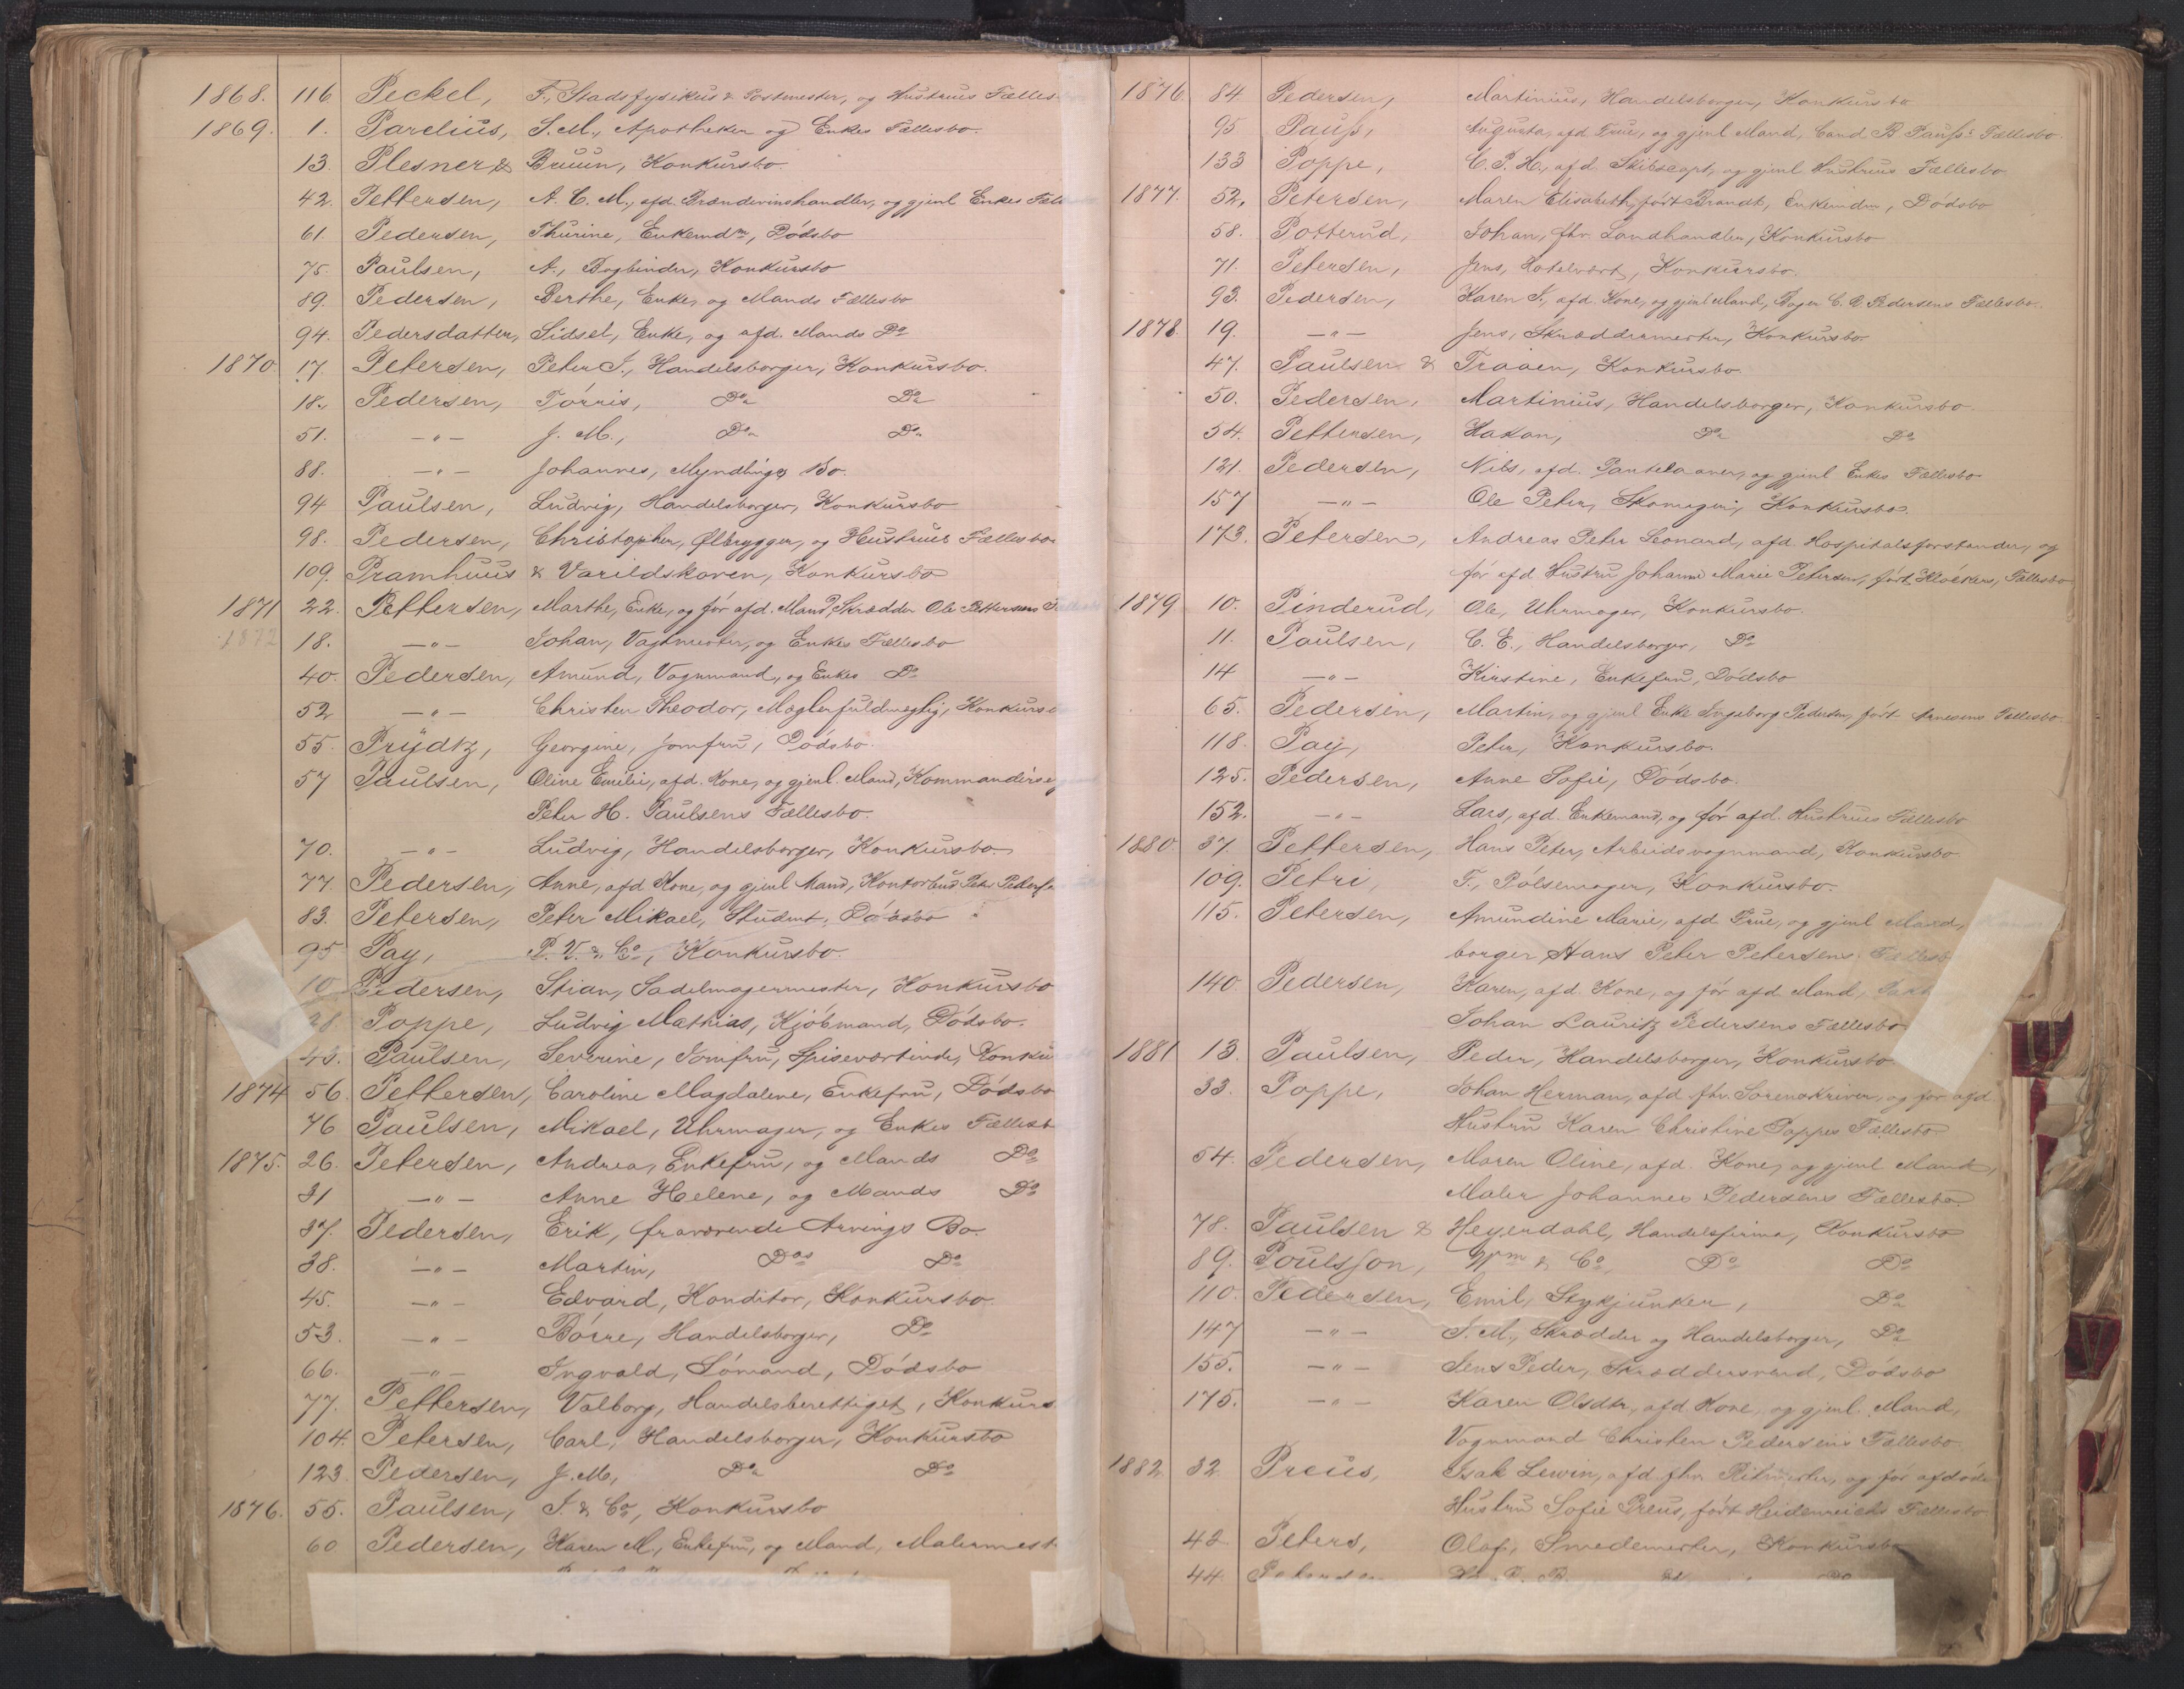 1868. 116. Peckel, F., Stadsfysikus & Postmester, og Hustrues Fælles-
1869. 1. Parelius, S. M., Apotheker og Enkes Fællesbo.
13. Plesner & Bruun, Konkursbo.
42. Pettersen, A. C. M., afd. Brændevinshandler, og gjenl Enkes Fæll
61. Pedersen, Thurine, Enkemdm, Dödsbo
75. Paulsen, A., Bogbinder, Konkursbo
89. Pedersen, Berthe, Enke, og Mands Fællesbo
94. Pedersdatter, Sidsel, Enke, og afd. Mands Do
1870 17. Petersen, Peter J., Handelsborger, Konkursbo.
18. Pedersen, Törris, Do Do
51. —"— J. M., Do Do
88. —"— Johannes, Myndlings Bo.
94 Paulsen, Ludvig, Handelsborger, Konkursbo
98. Pedersen, Christopher, Ølbrygger, og Hustrues Fællesbo
109. Pramhuus & Varildskoven, Konkursbo
1871 22. Pettersen, Marthe, Enke, og för afd. Mand, Skrædder Ole Pettersens
1872 18. —"— Johan, Vagtmester, og Enkes Fællesbo
40. Pedersen, Amund, Vognmand, og Enkes Do
52 —"— Christen Theodor, Mæglerfuldmægtig, Konkursb
55. Prydtz, Georgine, Jomfru, Dödsbo.
57 Paulsen, Oline Emilie, afd. Kone, og gjenl. Mand, Kommandörse
Peter H. Paulsens Fællesbo.
70. —"— Ludvig, Handelsborger, Konkursbo.
77. Pedersen, Anne, afd Kone, og gjenl Mand, Kontorbud Peter Peders
83. Petersen, Peter Mikael, Student, Dödsbo
95 Pay, P. V. & Co, Konkursbo.
10 Pedersen, Stian, Sadelmagermester, Konkursbo
28. Poppe, Ludvig Mathias, Kjöbmand, Dödsbo.
43. Paulsen, Severine, Jomfru, Spiseværtinde, Konku
1874 56. Pettersen, Caroline Magdalene, Enkefru, Dödsbo
76 Paulsen, Mikael, Uhrmager, og Enkes Fællesb
1875. 26. Petersen, Andrea, Enkefru, og Mands Do
31 —"— Anne Helene, og Mands Do
37. Pedersen, Erik, fraværende Arvings Bo.
38. —"— Martin, Dos Do
45. —"— Edvard, Konditor, Konkursbo.
53. —"— Börre, Handelsborger, Do
66. —"— Ingvald, Sömand, Dödsbo
77. Pettersen, Valborg, Handelsberettiget, Konkurs
104. Petersen, Carl, Handelsborger, Konkursbo
123. Pedersen, J. M., Do Do
1876. 55. Paulsen, J. & Co, Konkursbo
60 Pedersen, Karen M., Enkefru, og Mand, Malermest
1876. 84 Pedersen, Martinius, Handelsborger, Konkursbo
95 Pauss, Augusta, afd Frue, og gjenl Mand, Cand B Pauss' Fællesbo.
133 Poppe, C. P. H., afd. Skibscapt, og gjenl Hustrues Fællesbo.
1877. 52. Petersen, Maren Elisabeth, född Brandt, Enkemdm, Dödsbo
58. Potterud, Johan, fhv. Landhandler, Konkursbo
71. Petersen, Jens, Hotelvært, Konkursbo.
93. Pedersen, Karen J., afd. Kone, og gjenl Mand, Bager C. A Pedersens Fællesbo.
1878. 19. —"— Jens, Skræddermester, Konkursbo.
47. Paulsen & Traaen, Konkursbo.
50. Pedersen, Martinius, Handelsborger, Konkursbo.
54. Pettersen, Hakon, Do Do
121. Pedersen, Nils, afd. Pantelaaner, og gjenl Enkes Fællesbo
157 —"— Ole Peter, Skomager, Konkursbo.
173. Petersen, Andreas Peter Leonard, afd. Hospitalsforstander, og
för afd Hustru Johanne Marie Petersen, född Klöckers, Fællesbo
1879 10. Pinderud, Ole, Uhrmager, Konkursbo.
11. Paulsen, C. E., Handelsborger, Do
14 —"— Kirstine, Enkefru, Dödsbo
65. Pedersen, Martin, og gjenl Enke Ingeborg Pedersen, född Arnesens Fællesbo
118. Pay, Peter, Konkursbo.
125. Pedersen, Anne Sofie, Dödsbo.
152. —"— Lars, afd. Enkemand, og för afd. Hustrues Fællesbo
1880 37. Pettersen, Hans Peter, Arbeidsvognmand, Konkursbo
109. Petri, F., Pölsemager, Konkursbo.
115. Petersen, Amundine Marie, afd Frue, og gjenl Mand,
borger Hans Peter Petersens Fællesb
140. Pedersen, Karen, afd. Kone, og för afd Mand,
Johan Lauritz Pedersens Fællesbo
1881 13. Paulsen, Peder, Handelsborger, Konkursbo
33. Poppe, Johan Herman, afd fhv. Sorenskriver, og för afd
Hustru Karen Christine Poppes Fællesbo
54. Pedersen, Maren Oline, afd. Kone, og gjenl Mand,
Maler Johannes Pedersens Fællesbo.
78. Paulsen & Heyerdahl, Handelsfirma, Konkursbo
89. Poulsson, Wm & Co, Do Do
110. Pedersen, Emil, Stykjunker, Do
147 —"— J. M., Skrædder og Handelsborger, Do
155. —"— Jens Peder, Skræddersvend, Dödsbo
175. —"— Karen Olsdtr, afd Kone, og gjenl. Mand,
Vognmand Christen Pedersens Fællesbo.
1882 32. Preus, Isak Lewin, afd. fhv. Ritmester, og för afdöde
Hustru Sofie Preus, född Heidenreichs Fællesbo
42 Peters, Olaf, Smedemester, Konkursbo
44. Petersen